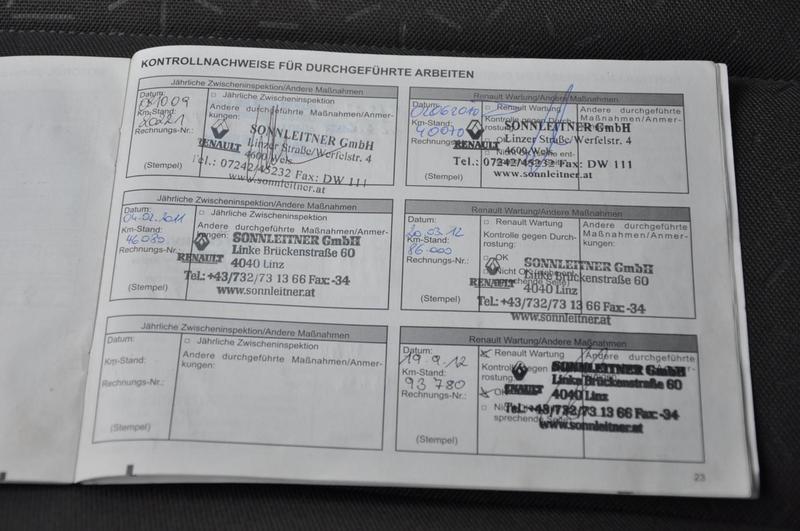 KONTROLLNACHWEISE FÜR DURCHGEFÜHRTE ARBEITEN
Jährliche Zwischeninspektion/Andere Maßnahmen
Datum:
Km-Stand:
20221
Rechnungs-Nr.:
(Stempel)
Jährliche Zwischeninspektion
Andere durchgeführte Maßnahmen/Anmerkungen:
RENAULT
SONNLEITNER GmbH
Linzer Straße/Werfelstr. 4
4600 Wels
Tel.: 07242/45232 Fax: DW 111
www.sonnleitner.at
Renault Wartung/Andere Maßnahmen
Datum:
Km-Stand:
40070
Rechnungs-Nr.:
(Stempel)
Renault Wartung
Kontrolle gegen Durch-
rostung:
Andere durchgeführte
Maßnahmen/Anmer-
RENAULT
SONNLEITNER GmbH
Linzer Straße/Werfelstr. 4
4600 Wels
Tel.: 07242/45232 Fax: DW 111
www.sonnleitner.at
Jährliche Zwischeninspektion/Andere Maßnahmen
Datum:
04.02.2011
Km-Stand:
46030
Rechnungs-Nr.:
(Stempel)
Jährliche Zwischeninspektion
Andere durchgeführte Maßnahmen/Anmer-
RENAULT
SONNLEITNER GmbH
Linke Brückenstraße 60
4040 Linz
Tel.: +43/732/73 13 66 Fax: -34
www.sonnleitner.at
Renault Wartung/Andere Maßnahmen
Datum:
20.03.12
Km-Stand:
86.000
Rechnungs-Nr.:
(Stempel)
Renault Wartung
Kontrolle gegen Durch-
rostung:
OK
Andere durchgeführte
Maßnahmen/Anmer-
kungen:
RENAULT
SONNLEITNER GmbH
Linke Brückenstraße 60
4040 Linz
Tel.: +43/732/73 13 66 Fax: -34
www.sonnleitner.at
Jährliche Zwischeninspektion/Andere Maßnahmen
Datum:
Km-Stand:
Rechnungs-Nr.:
(Stempel)
Jährliche Zwischeninspektion
Andere durchgeführte Maßnahmen/Anmer-
kungen:
Renault Wartung/Andere Maßnahmen
Datum:
19.9.12
Km-Stand:
93780
Rechnungs-Nr.:
(Stempel)
Renault Wartung
Kontrolle gegen
rostung:
OK
Andere durchgeführte
RENAULT
SONNLEITNER GmbH
Linke Brückenstraße 60
4040 Linz
Tel.: +43/732/73 13 66 Fax: -34
www.sonnleitner.at
23